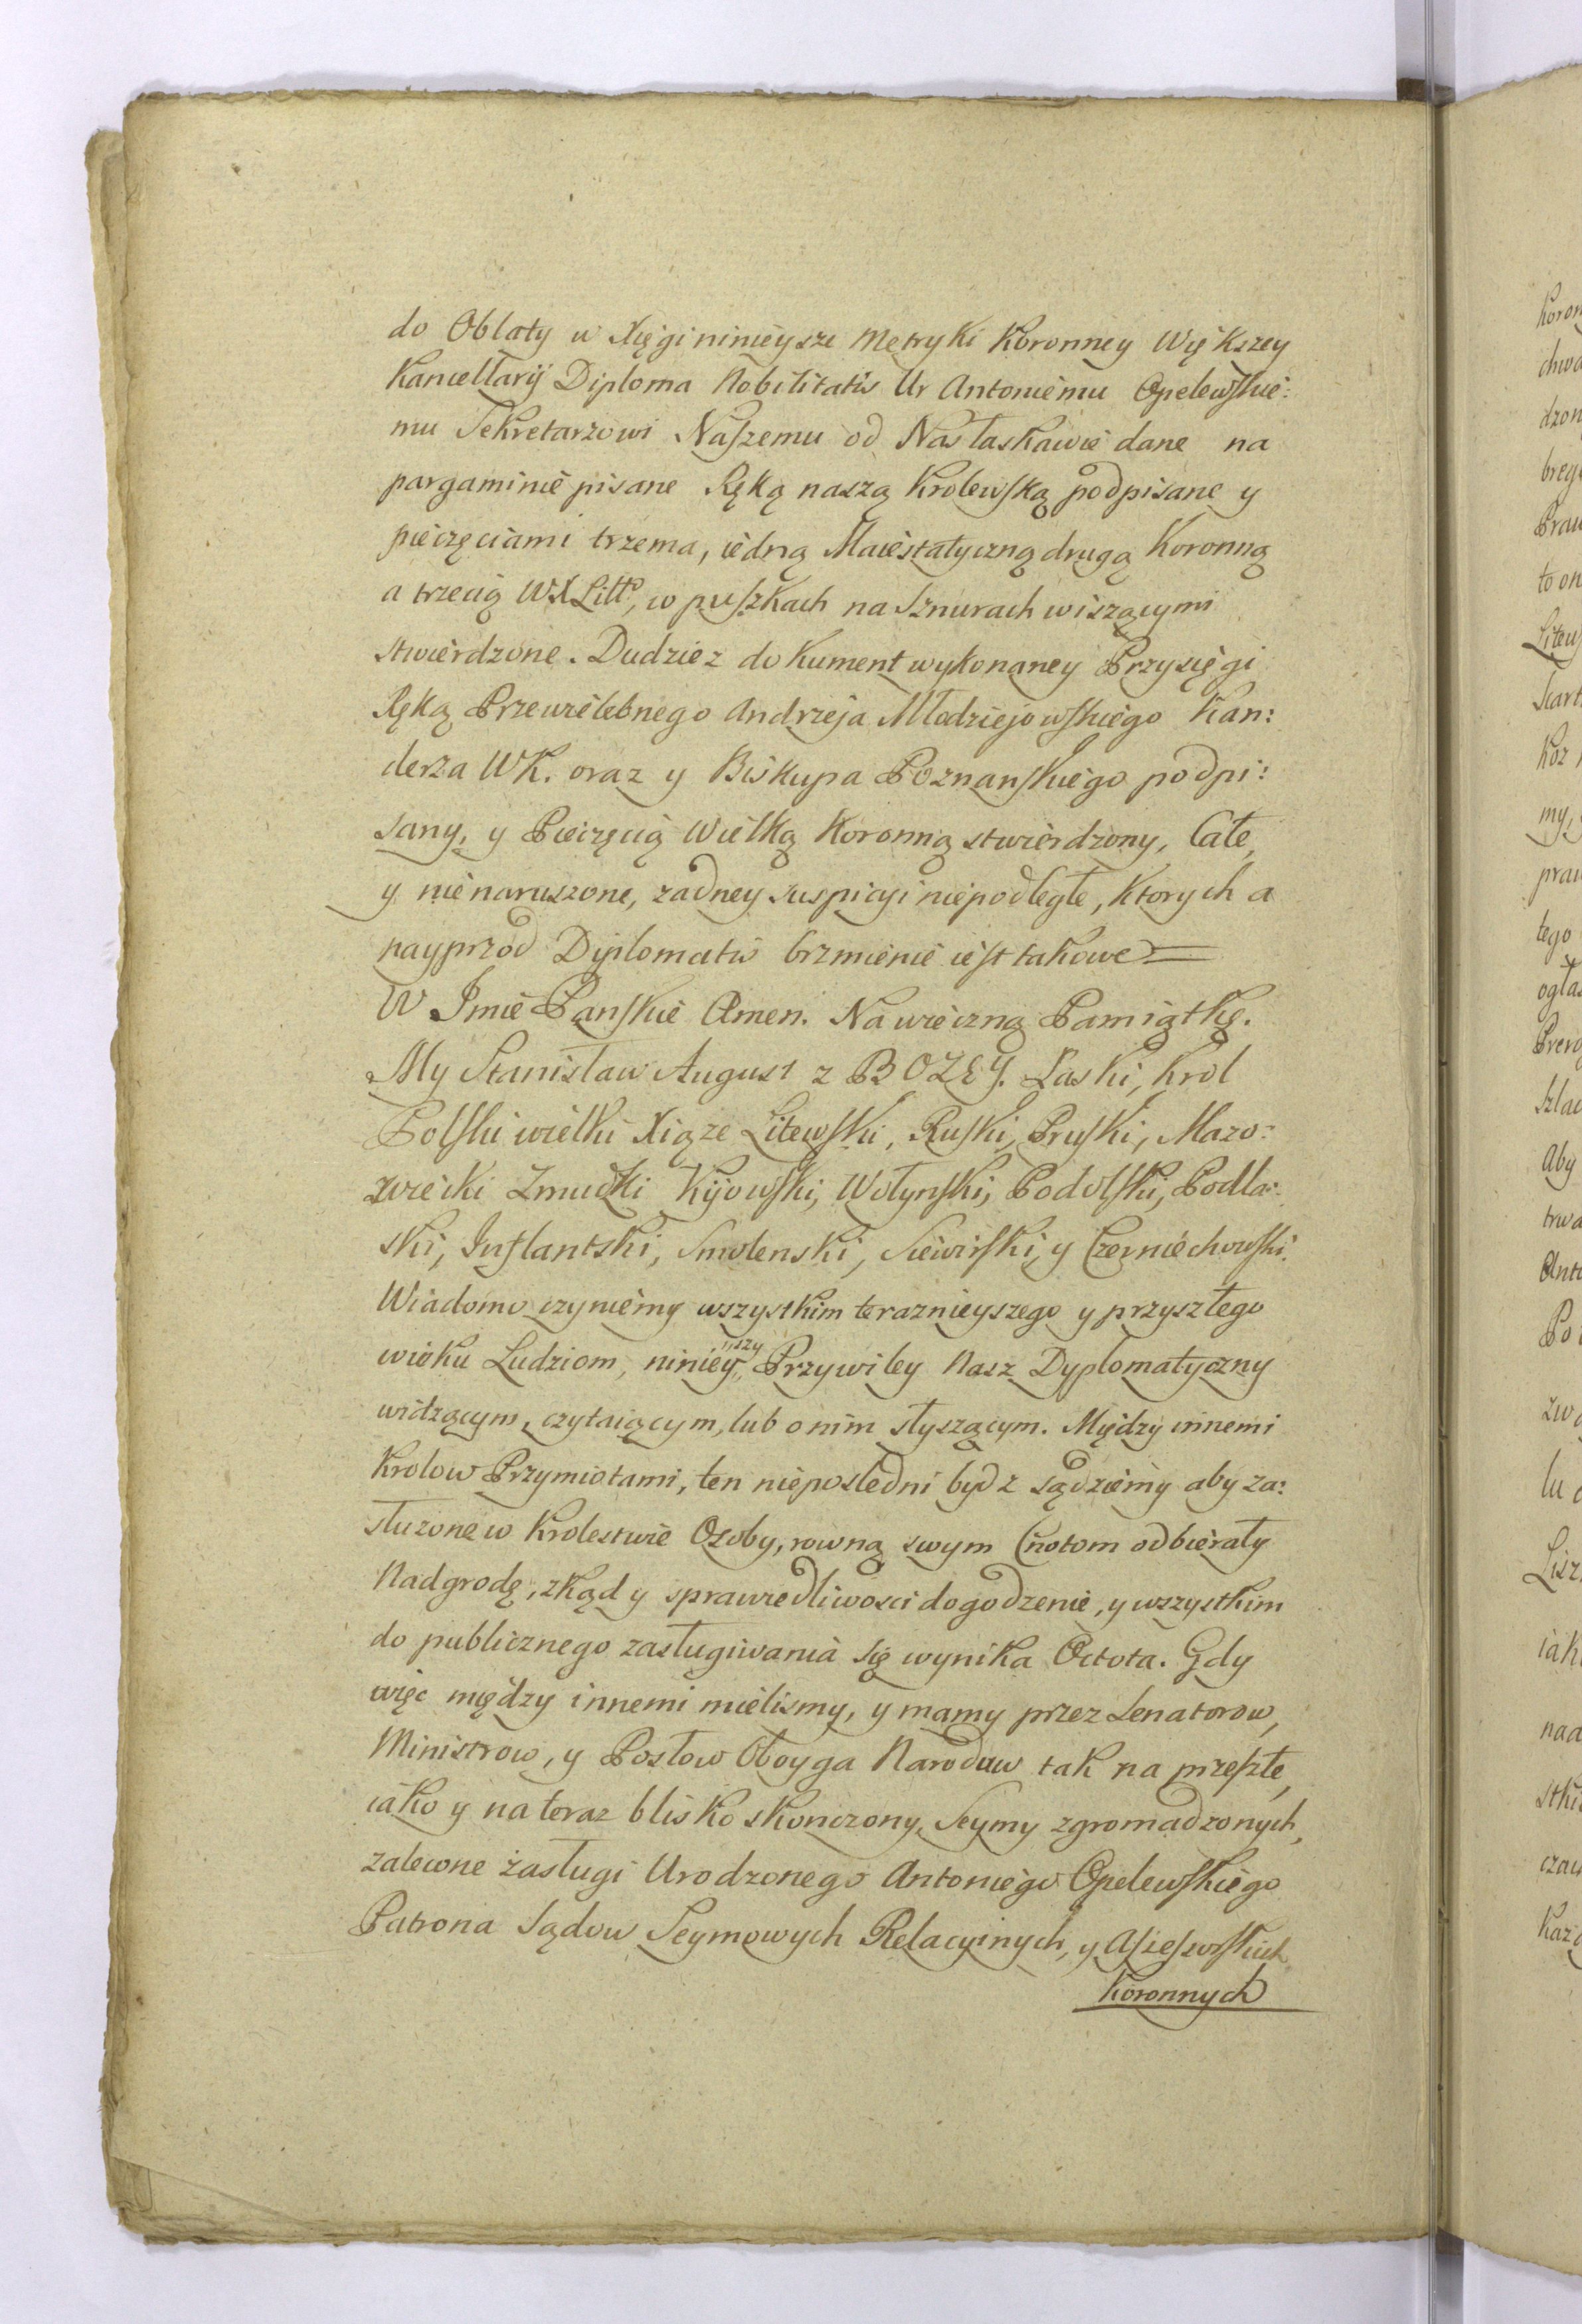 do Oblaty w Xięgi ninieysze Metryki Koronney Większey
Kancellaryi Diploma Nobilitatis Ur Antoniemu Opelewskie:
mu Sekretarzowi Naszemu od Nas łaskawie dane na
pargaminie pisane Ręką naszą Krolewską podpisane y
pieczęciami trzema, iedną Maiestatyczną drugą Koronną
a trzecią WXLitt°, w puszkach na Sznurach wiszącymi
stwierdzone. Dudziez dokument wykonaney Przysięgi
Ręką Przewielebnego Andrzeja Młodziejowskiego Kan:
clerza WK. oraz y Biskupa Poznanskiego podpi:
sany, y Pieczęcią Wielką Koronną stwierdzony, Całe,
y nienaruszone, zadney suspicyi niepodległe, Ktorych a
nayprzod Dyplomatis brzmienie iest takowe =
W Imie Panskie Amen. Na wieczną Pamiątkę.
My Stanisław August z BOZEY. Łaski, Krol
Polski wielki Xiąze Litewski, Ruski, Pruski, Mazo:
wiecki Zmudzki Kijowski, Wołynski, Podolski, Podla:
ski, Inflantski, Smolenski, Siewirski, y Czerniechowski.
Wiadomo czyniemy wszystkim teraznieyszego y przyszłego
wieku Ludziom, ninieyszy Przywiley Nasz Dyplomatyczny
widzącym, czytaiącym, lub o nim słyszącym. Między innemi
Krolow Przymiotami, ten nieposledni bydz sądziemy aby za:
słuzone w Krolestwie Osoby, rowną swym Cnotom odbierały
Nadgrodę, zkąd y sprawiedliwosci dogodzenie, y wszystkim
do publicznego zasługiwania się wynika Ochota. Gdy
więc między innemi mielismy, y mamy przez Senatorow,
Ministrow, y Posłow Oboyga Narodow tak na przeszłe,
iako y na teraz blisko skonczony Seymy zgromadzonych,
zalecone zasługi Urodzonego Antoniego Opelewskiego
Patrona Sądow Seymowych Relacyinych, y Assessorskich
Koronnych